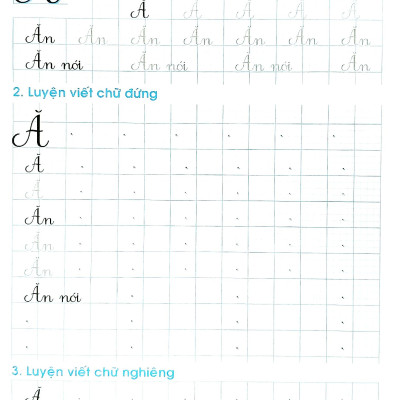 Ă
Ă Ă Ă Ă Ă
Ăn Ăn Ăn Ăn Ăn Ăn Ăn
Ăn nói Ăn nói Ăn nói Ăn
2. Luyện viết chữ đứng
Ă
Ă
Ă
Ăn
Ăn
Ăn
Ăn nói
3. Luyện viết chữ nghiêng
Ă